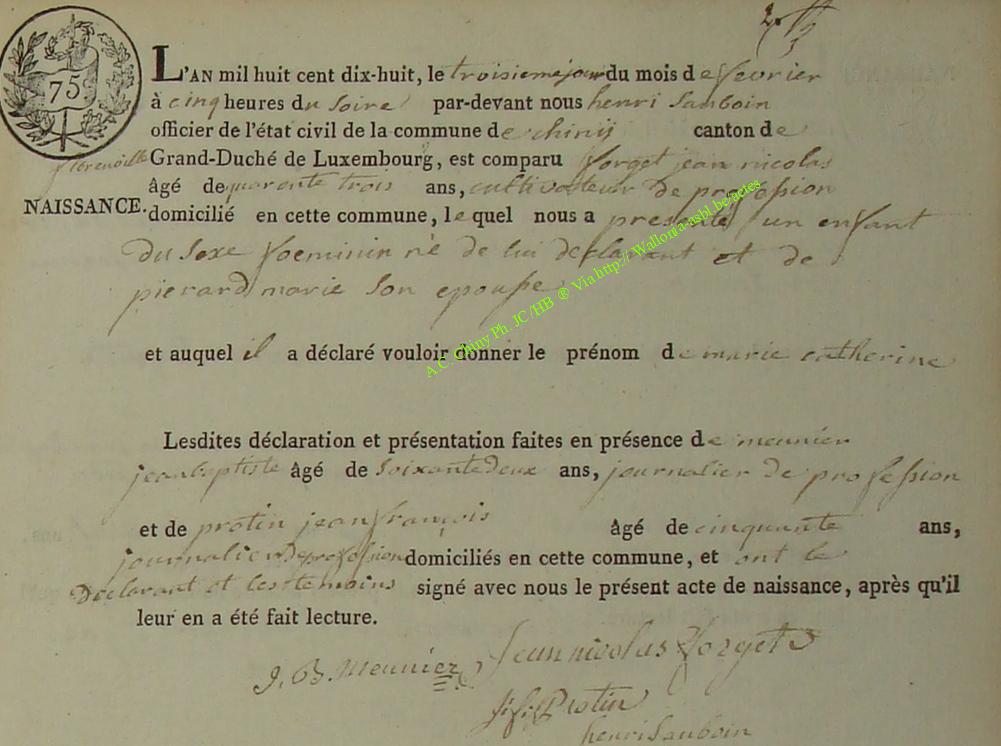 75
L'AN mil huit cent dix-huit, le troisieme jour du mois de fevrier
à cinq heures du soire par-devant nous henri Sauboin
officier de l'état civil de la commune de chinij canton de
florenville Grand-Duché de Luxembourg, est comparu forget jean nicolas
âgé de quarante trois ans, cultivateur de profession
NAISSANCE. domicilié en cette commune, le quel nous a presenté un enfant
du sexe foeminin né de lui declarant et de
pierard marie son epouse
et auquel il a déclaré vouloir donner le prénom de marie catherine
Lesdites déclaration et présentation faites en présence de meunier
jean baptiste âgé de soixante deux ans, journalier de profession
et de protin jean françois âgé de cinquante ans,
journalier de profession domiciliés en cette commune, et ont le
Declarant et les temoins signé avec nous le présent acte de naissance, après qu'il
leur en a été fait lecture.
J. B. Meunier Jean nicolas forget
j. f. Protin
henri Sauboin
A.C. Chiny Ph. JC/HB ® Via http://Wallonia-asbl.be/actes